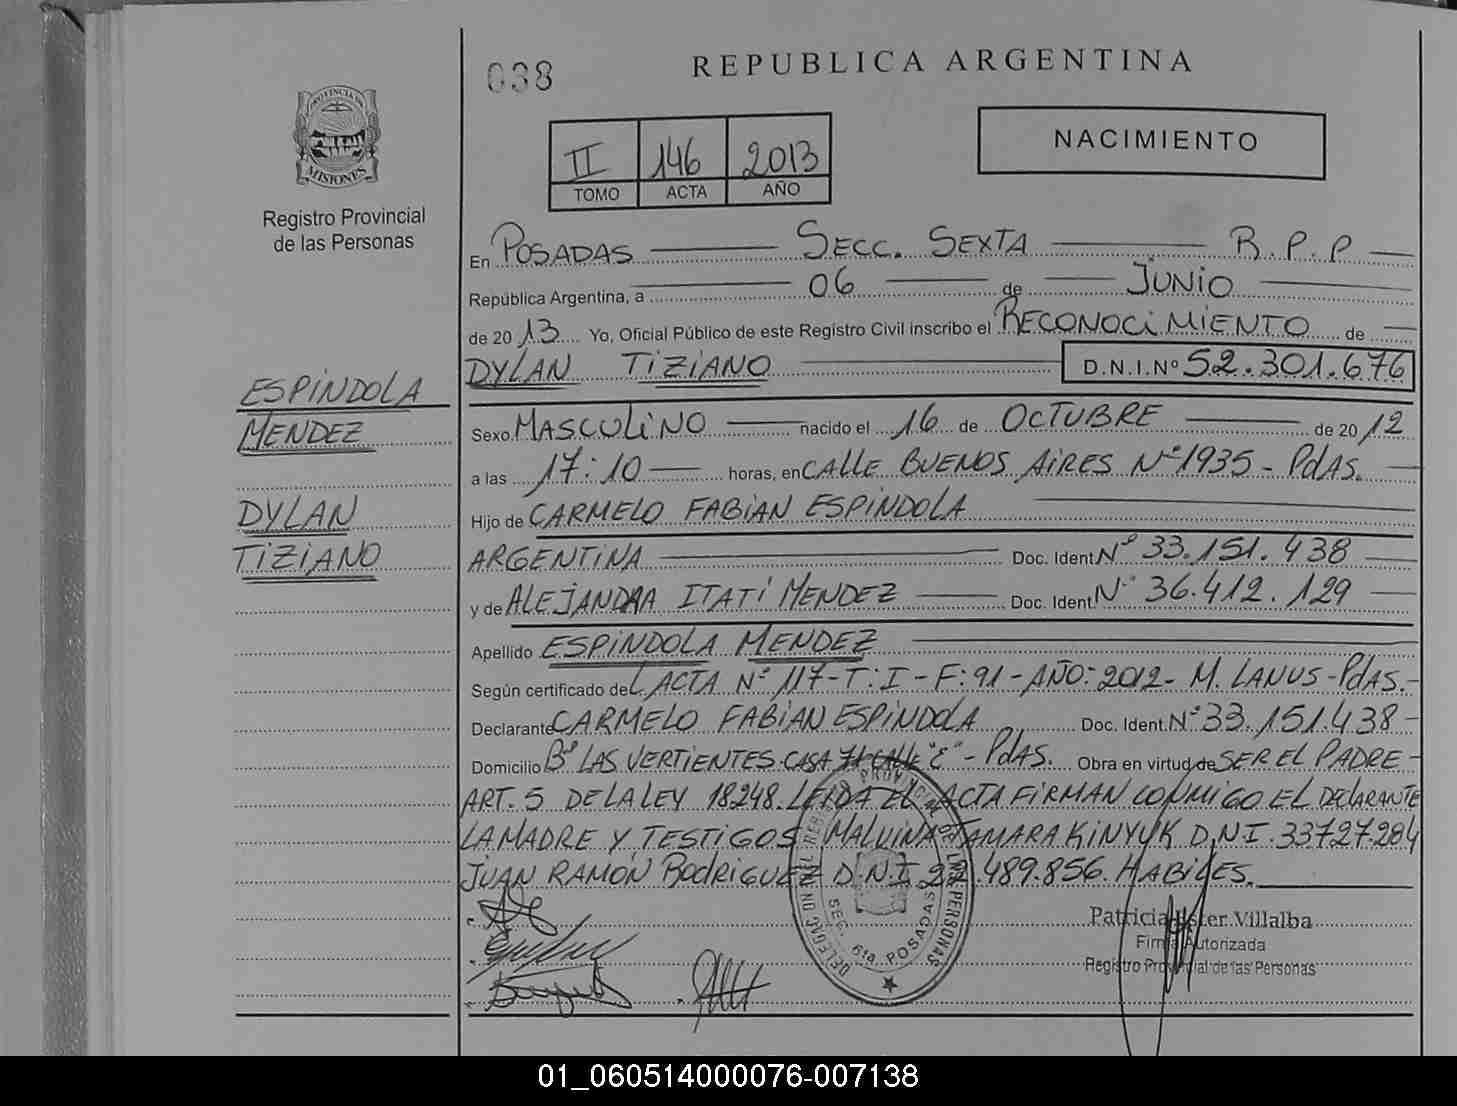 038
REPUBLICA ARGENTINA
PROVINCIA DE
MISIONES
Registro Provincial
de las Personas
II 146 2013
TOMO ACTA AÑO
NACIMIENTO
En POSADAS SECC. SEXTA R.P.P
República Argentina, a 06 de JUNIO
de 2013 Yo, Oficial Público de este Registro Civil inscribo el RECONOCIMIENTO de
DYLAN TIZIANO D.N.I.Nº 52.301.676
ESPINDOLA
MENDEZ
DYLAN
TIZIANO
Sexo MASCULINO nacido el 16 de OCTUBRE de 2012
a las 17:10 horas, en CALLE BUENOS AIRES Nº 1935 - PdAS.
Hijo de CARMELO FABIAN ESPINDOLA
ARGENTINA Doc. Ident Nº 33.151.438
y de ALEJANDRA ITATÍ MENDEZ Doc. Ident Nº 36.412.129
Apellido ESPINDOLA MENDEZ
Según certificado de L. ACTA Nº 117-T:I-F:91-AÑO:2012- M. LANUS-PdAS.-
Declarante CARMELO FABIAN ESPINDOLA Doc. Ident. Nº 33.151.438-
Domicilio Bº LAS VERTIENTES CASA 71 CALLE "E" - PdAS. Obra en virtud de SER EL PADRE-
ART. 5 DE LA LEY 18248. LEIDA EL ACTA FIRMAN CONMIGO EL DECLARANTE
LA MADRE Y TESTIGOS MALVINA TAMARA KINYUK D.N.I. 33.727.284
JUAN RAMÓN RODRIGUEZ D.N.I 489.856. HABILES.
DELEGACION DEL REGISTRO PROVINCIAL DE LAS PERSONAS
SEC. 6ta. POSADAS
Patricia Ester Villalba
Firma Autorizada
Registro Provincial de las Personas
01_060514000076-007138